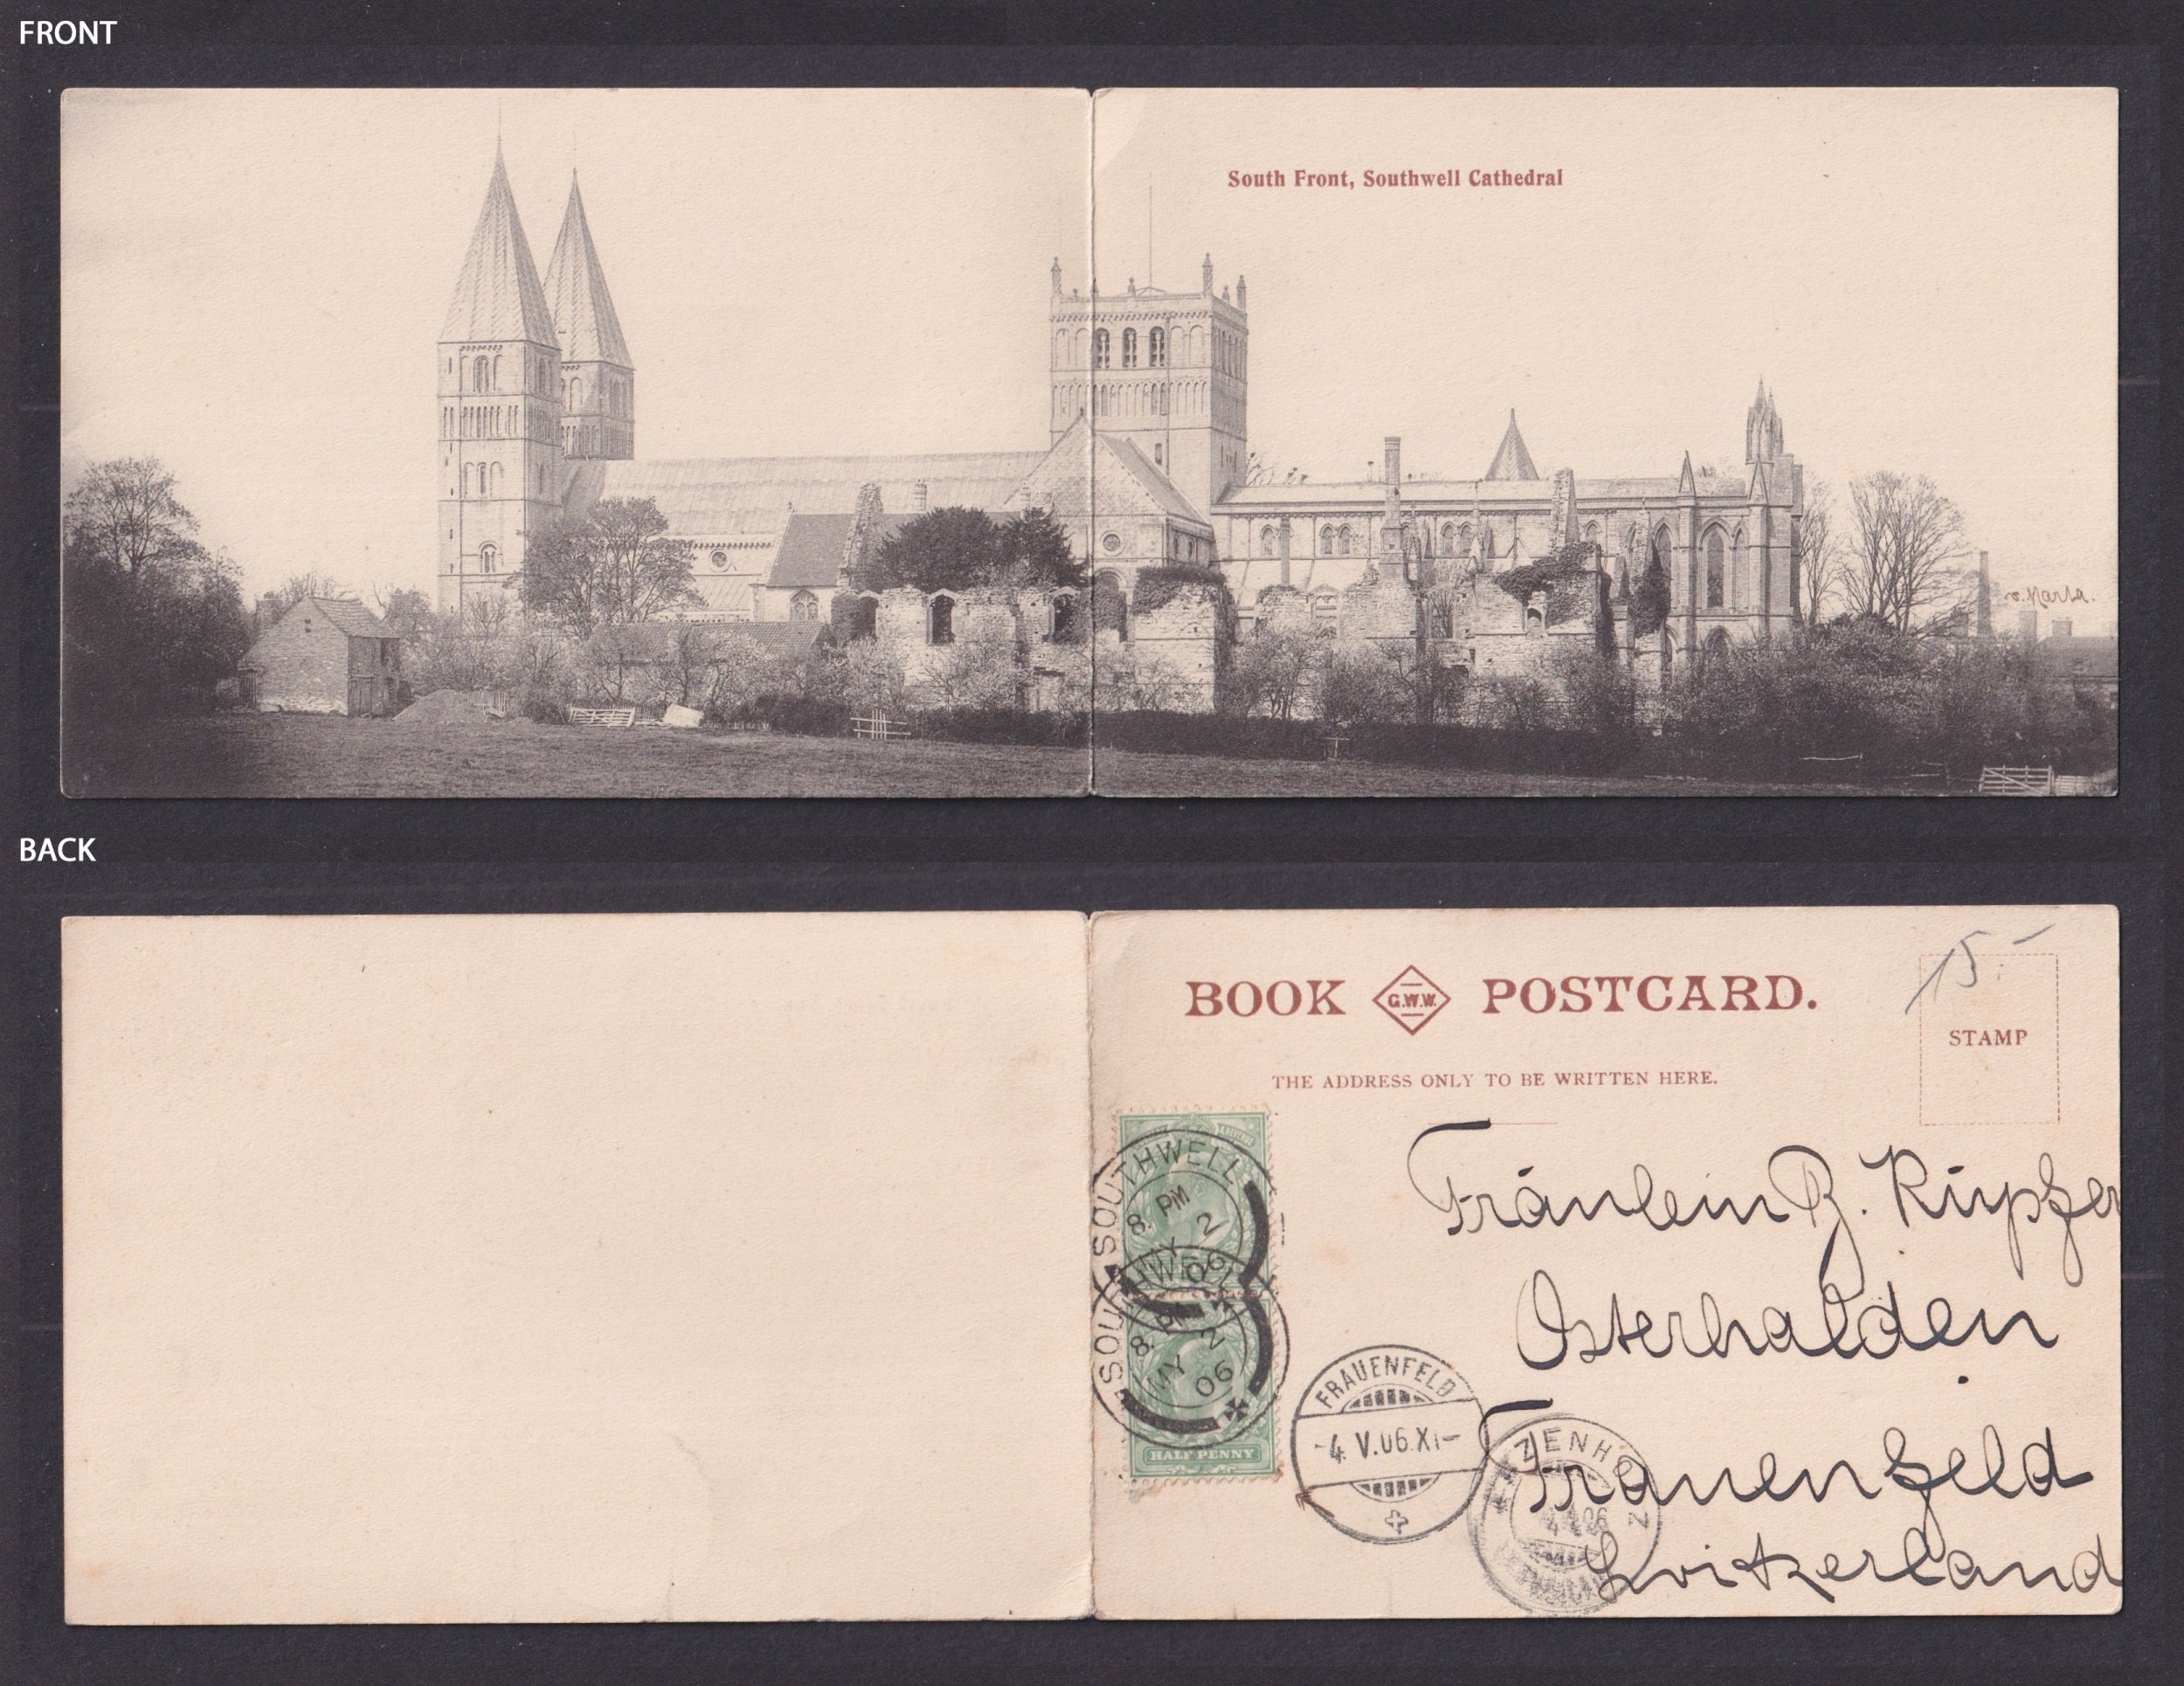 FRONT
South Front, Southwell Cathedral
v. Marta.
BACK
BOOK G.W.W. POSTCARD.
15.-
STAMP
THE ADDRESS ONLY TO BE WRITTEN HERE.
SOUTHWELL
8. PM
MY 2
06
SOUTHWELL
8. PM
MY 2
06
HALF PENNY
Fräulein B. Küpfer
Osterhalden
Frauenfeld
Switzerland
FRAUENFELD
-4.V.06.XI-